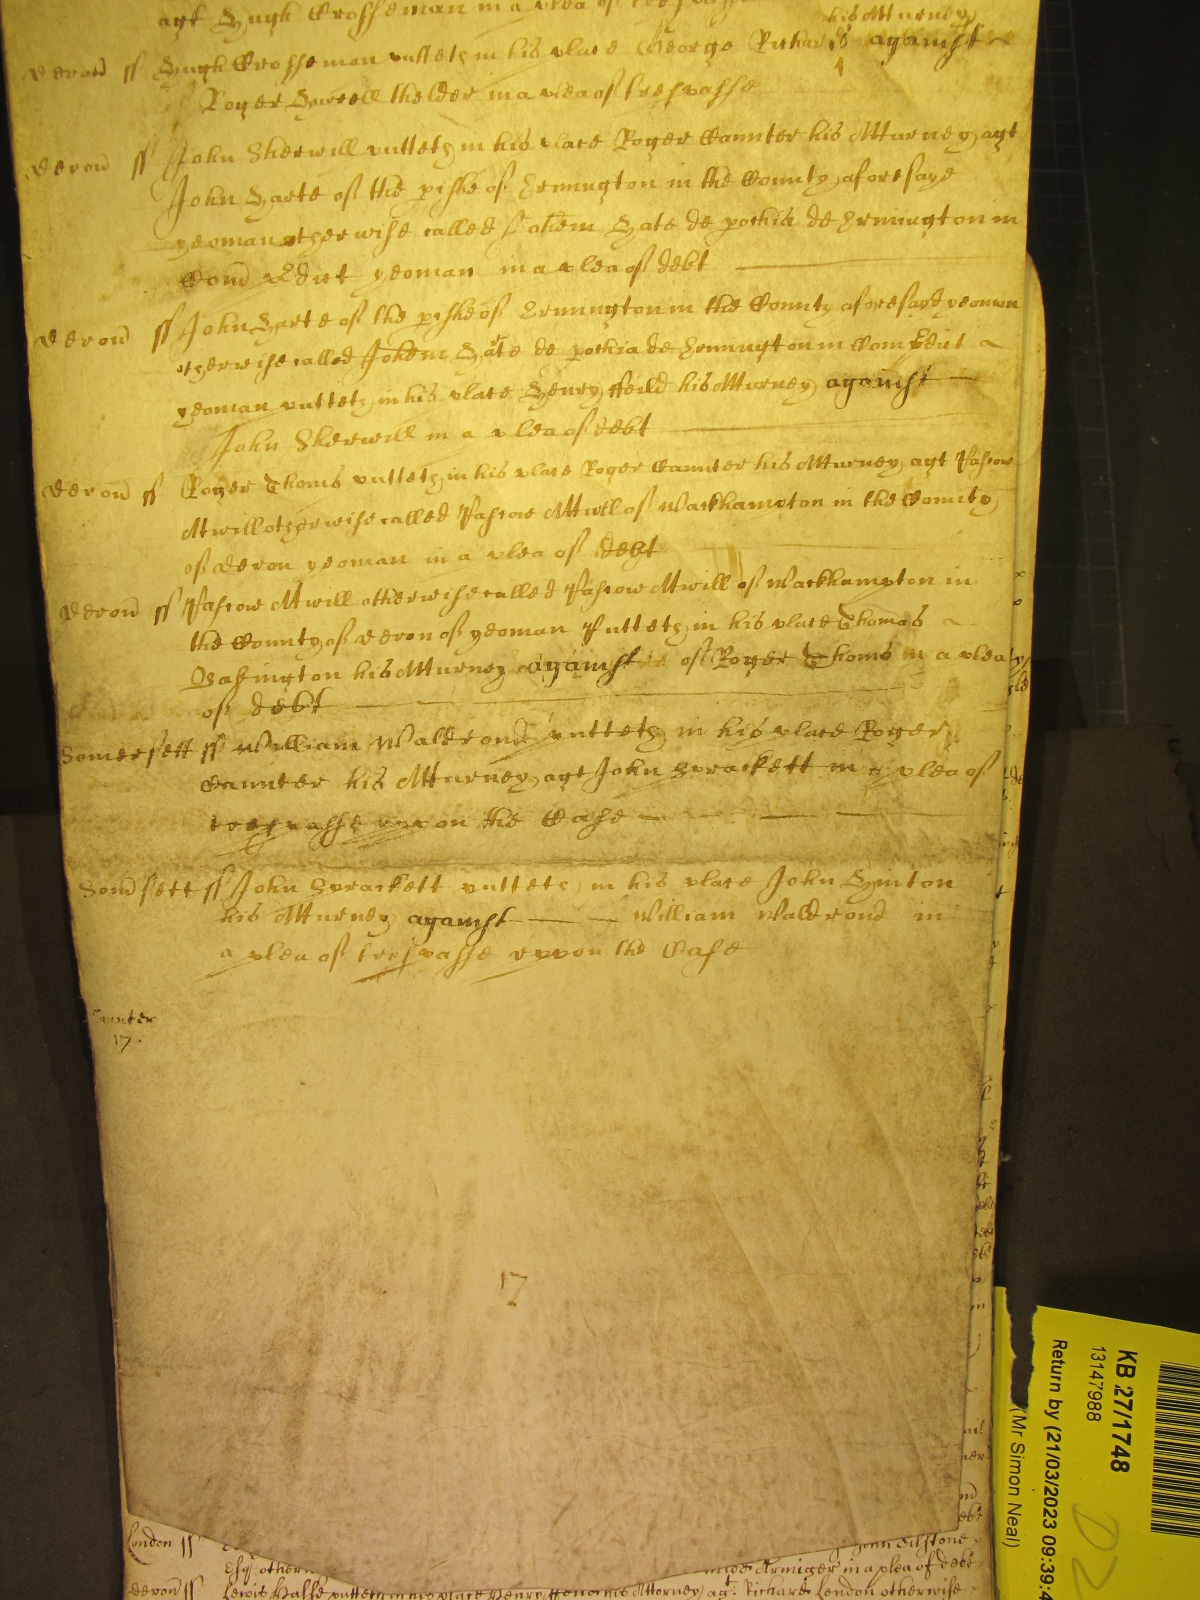 agt Hugh Crosseman in a plea of trespasse
his Atturney
Devon ss Hugh Crosseman putteth in his place George Richards against
Roger Sywell thelder in a plea of trespasse
Devon ss John Sherwill putteth in his place Roger Caunter his Atturney agt
John Harte of the pishe of Ermington in the County aforesayd
yeoman otherwise called Johem Hate de pochia de Ermington in
Com Pdict yeoman in a plea of debt
Devon ss John Harte of the pishe of Ermington in the County aforesayd yeoman
otherwise called Johem Hate de pochia de Ermington in Com Pdict
yeoman putteth in his place Henry ffeild his Atturney against
John Sherwill in a plea of debt
Devon ss Roger Thoms putteth in his place Roger Caunter his Atturney agt Pascow
Atwill otherwise called Pascow Attwll of Wackhampton in the County
of Devon yeoman in a plea of debt
Devon ss Pascow Atwill otherwise called Pascow Atwill of Wackhampton in
the County of Devon of yeoman Putteth in his place Thomas
his Atturney against of Roger Thoms in a plea
of debt
Somersett ss William Waldrond putteth in his place Roger
Caunter his Atturney agt John Sprackett in a plea of
trespasse uppon the Case
Somsett ss John Sprackett putteth in his place John Hinton
his Atturney against William Waldrond in
a plea of trespasse uppon the Case
Caunter
17.
17
London ss
Esqr otherw Armiger in a plea of debt
Devon ss Lewis Halse putteth in his place Henry his Attorney agt. Richard London otherwise
KB 27/1748
13147988
Return by (21/03/2023 09:39:4
(Mr Simon Neal)
D2